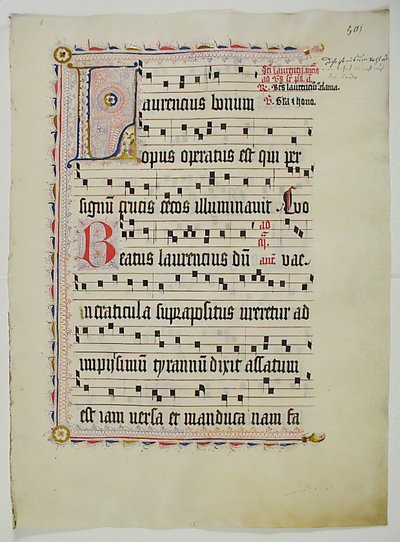 501
Sci laurencij
ad
R. Bts laurenciꝰ clama.
V. Gl̄a ⁊ hono.
Laurencius bonum
opus operatus est qui per
signū crucis cecos illuminauit Euo
ad
Beatus laurencius dū an̄t vae
in craticula suprapositus ureretur ad
impijssimū tyrannū dixit assatum
est iam versa et manduca nam fa